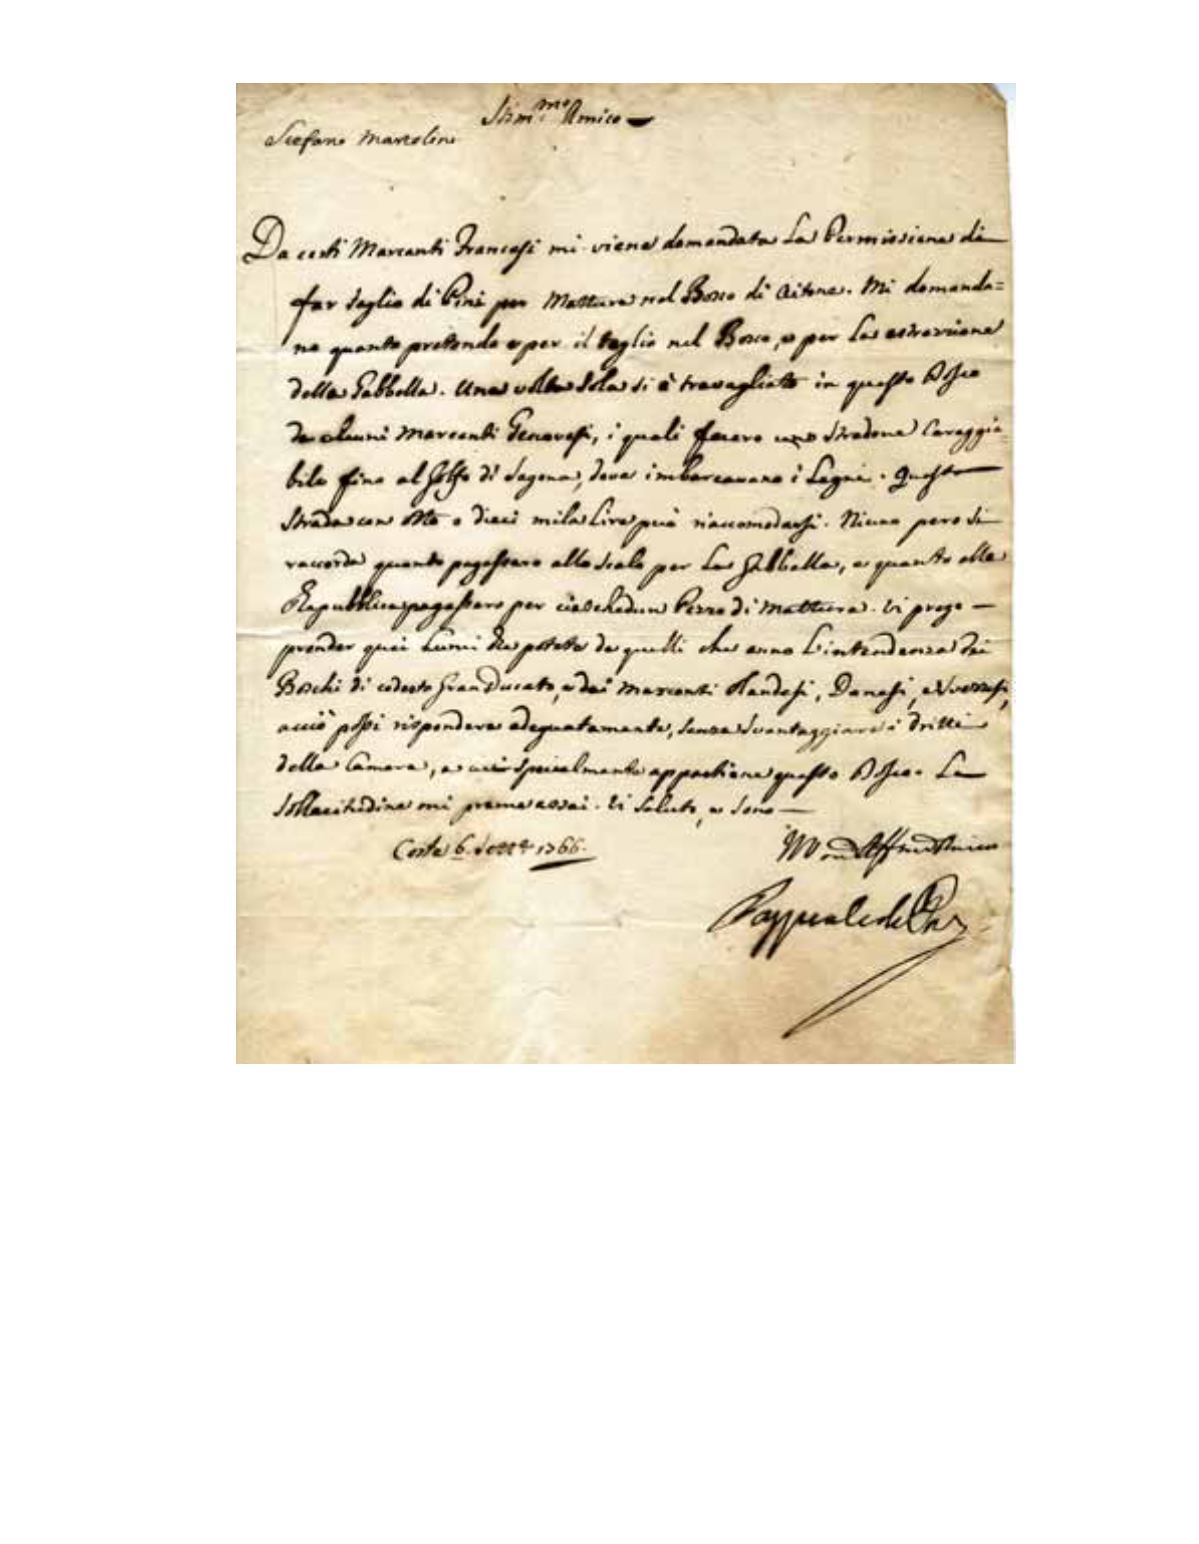 Stim.mo Amico
Stefano Martolini
Da certi Marcanti Francesi mi viene domandata La Permissione di
far taglio di Pini per Mattura nel Bosco di Aitone. Mi domanda=
no quanto pretendo e per il taglio nel Bosco, e per La estrazione
della Gabbella. Una volta sola si è travagliato in questo Bosco
da alcuni Marcanti Genovesi, i quali fecero uno stradone Careggia
bile fino al Golfo di Sagona, dove imbarcavano i Legni. Questa
Strada con otto o dieci mila Lire può riaccomodarsi. Niuno però si
raccorda quanto pagassero allo scalo per La Gabbella, e quanto alla
Repubblica pagassero per ciaschedun Pezzo di Mattura. Vi prego
prender quei Lumi che potete da quelli che anno L'intendenza dei
Boschi di codesto Gran Ducato, e dai Marcanti Olandesi, Danesi, e Svezzesi,
acciò possi rispondere adeguatamente, senza svantaggiare i dritti
della Camera, a cui specialmente appartiene questo Bosco. La
sollecitudine mi preme assai. Vi saluto, e sono
Corte 6. 1766.
Amico
Pasquale de